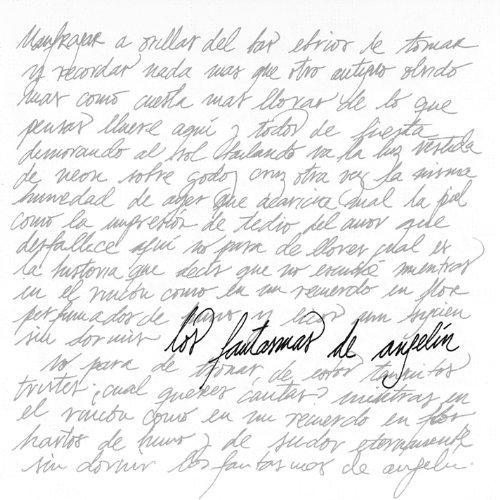 Naufragar a orillas del bar ebrios de tomar
y recordar nada mas que otro antiguo olvido
mas como cuesta mas llorar de lo que
pensar llueve aquí y todos de fiesta
demorando al sol bailando va la luz vestida
de neon sobre godoy cruz otra vez la misma
humedad de ayer que acaricia mal la piel
como la impresión de tedio del amor que
desfallece aquí no para de llover cual es
la historia que decis que no escuché mientras
en el rincón como en un recuerdo en flor
perfumados de y licor aun siguen
sin dormir los fantasmas de angelín
no para de de esos tanguitos
tristes. ¿cual queres cantar? mientras en
el rincón como en un recuerdo en flor
hartos de humo y de sudor eternamente
sin dormir los fantasmas de angelín.